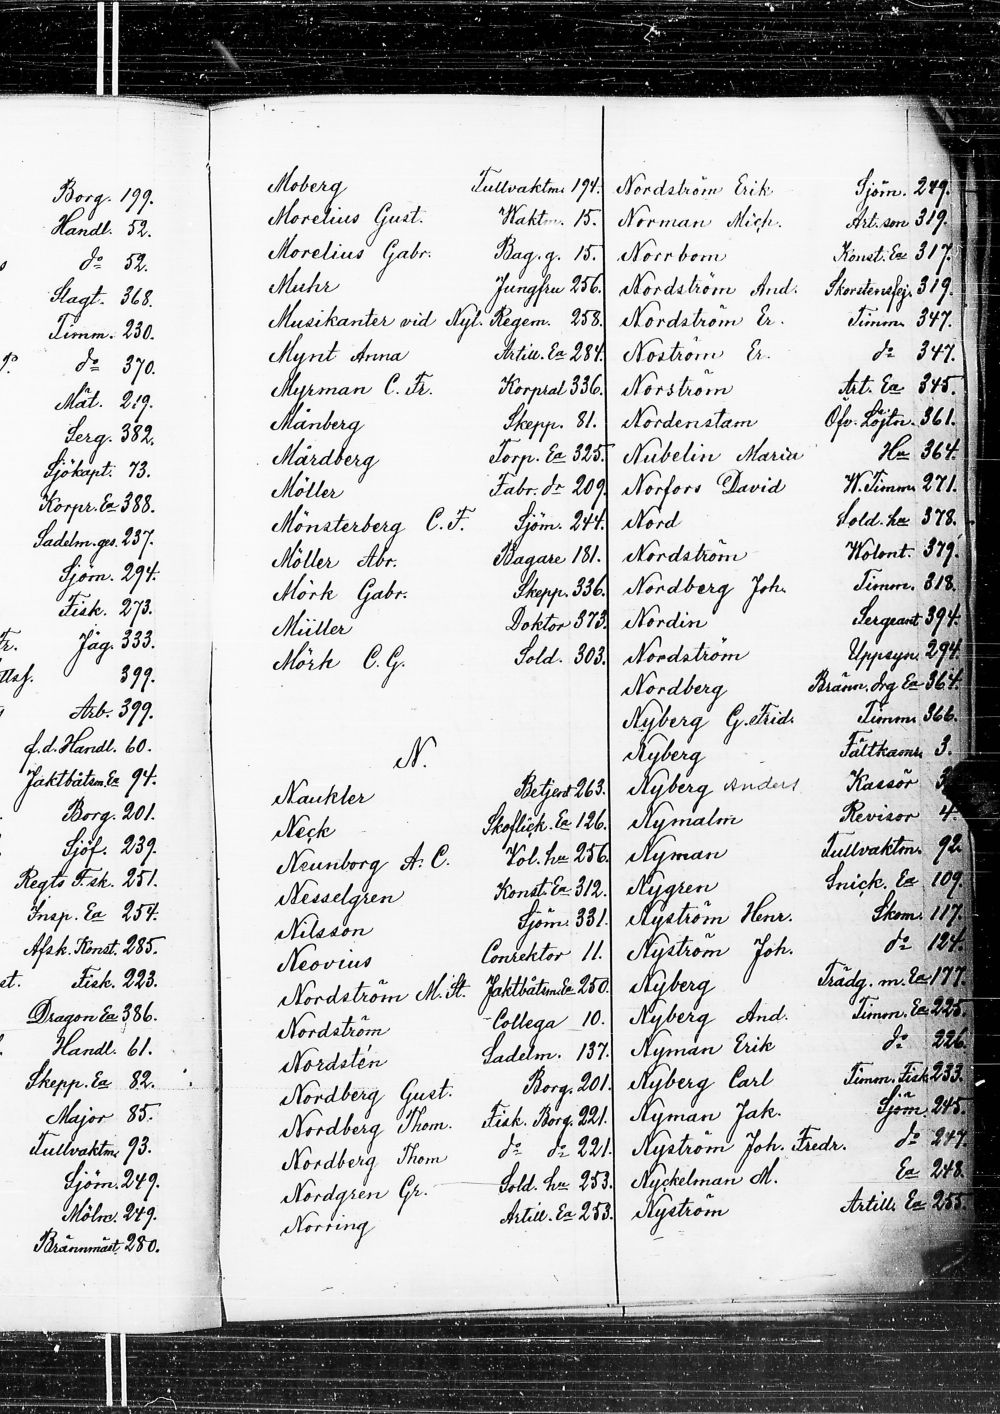 Borg. 199.
Handl. 52.
do 52.
Slagt. 368.
Timm. 230.
do 370.
Mät. 219.
Serg. 382.
Sjökapt. 73.
Korpr. Ea 388.
Sadelm. ges. 237.
Sjöm. 294.
Fisk. 273.
Fr. Jäg. 333.
399.
Arb. 399.
f.d. Handl. 60.
Jaktbåtsm. Ea 94.
Borg. 201.
Sjöf. 239.
Regts F.sk. 251.
Insp. Ea 254.
Afsk. Konst. 285.
st. Fisk. 223.
Dragon Ea 386.
Handl. 61.
Skepp. Ea 82.
Major 85.
Tullvaktm. 93.
Sjöm. 249.
Möln. 249.
Brännmäst. 280.
Moberg Tullvaktm. 194.
Morelius Gust. Waktm. 15.
Morelius Gabr. Bag. g. 15.
Muhr Jungfru 256.
Musikanter vid Nyl. Regem. 258.
Mynt Anna Artill. Ea 284.
Myrman C. Fr. Korpral 336.
Månberg Skepp. 81.
Mårdberg Torp. Ea 325.
Möller Fabr. dr 209.
Mönsterberg C. F. Sjöm. 244.
Möller Abr. Bagare 181.
Mörk Gabr. Skepp. 336.
Müller Doktor 373.
Mörk C. G. Sold. 303.
N.
Naukler Betjent 263.
Neck Skoflick. Ea 126.
Neunborg A. C. Vol. hu 256.
Nesselgren Konst. Ea 312.
Nilsson Sjöm. 331.
Neovius Conrektor 11.
Nordström M. St. Jaktbåtsm. Ea 250.
Nordström Collega 10.
Nordstén Sadelm. 137.
Nordberg Gust. Borg. 201.
Nordberg Thom. Fisk. Borg. 221.
Nordberg Thom do do 221.
Nordgren Gr. Sold. hu 253.
Norring Artill. Ea 253.
Nordström Erik Sjöm. 249.
Norman Mich. Art. son 319.
Norrbom Konst. Ea 317.
Nordström And. Skorstensfej. 319.
Nordström Er. Timm. 347.
Noström Er. do 347.
Norström Art. Ea 345.
Nordenstam Öfv. Löjtn. 361.
Nubelin Maria Hu 364.
Norfors David W. Timm. 271.
Nord Sold. hu 378.
Nordström Wolont. 379.
Nordberg Joh. Timm. 318.
Nordin Sergeant 394.
Nordström Uppsyn. 294.
Nordberg Bränn. drg Ea 364.
Nyberg G. Frid. Timm. 366.
Nyberg Fältkamr. 3.
Nyberg Anders Kassör
Nymalm Revisor 4.
Nyman Tullvaktm. 92.
Nygren Snick. Ea 109.
Nyström Henr. Skom. 117.
Nyström Joh. do 124.
Nyberg Trädg. m. Ea 177.
Nyberg And. Timm. Ea 225.
Nyman Erik do 226.
Nyberg Carl Timm. Fisk 233.
Nyman Jak. Sjöm. 245.
Nyström Joh. Fredr. do 247.
Nyckelman M. Ea 248.
Nyström Artill. Ea 255.